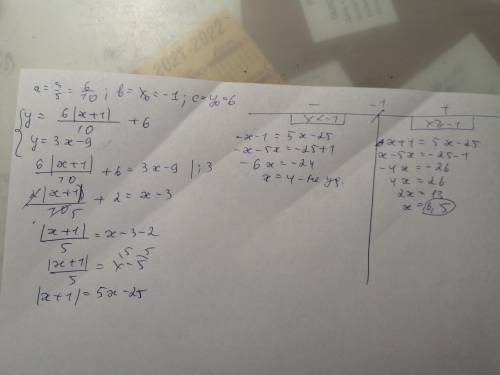 a = 3/5 = 6/10 ; b = x₀ = -1; c = y₀ = 6
{ y = 6|x+1|/10 + 6
y = 3x-9
6|x+1|/10 + 6 = 3x-9 |:3
|x+1|/5 + 2 = x-3
|x+1|/5 = x-3-2
|x+1|/5 = x-5
|x+1| = 5x-25
- -1 +
x<-1
-x-1 = 5x-25
-x-5x = -25+1
-6x = -24
x = 4 - не уд.
x≥-1
x+1 = 5x-25
x-5x = -25-1
-4x = -26
4x = 26
2x = 13
x = 6,5
2021-2022